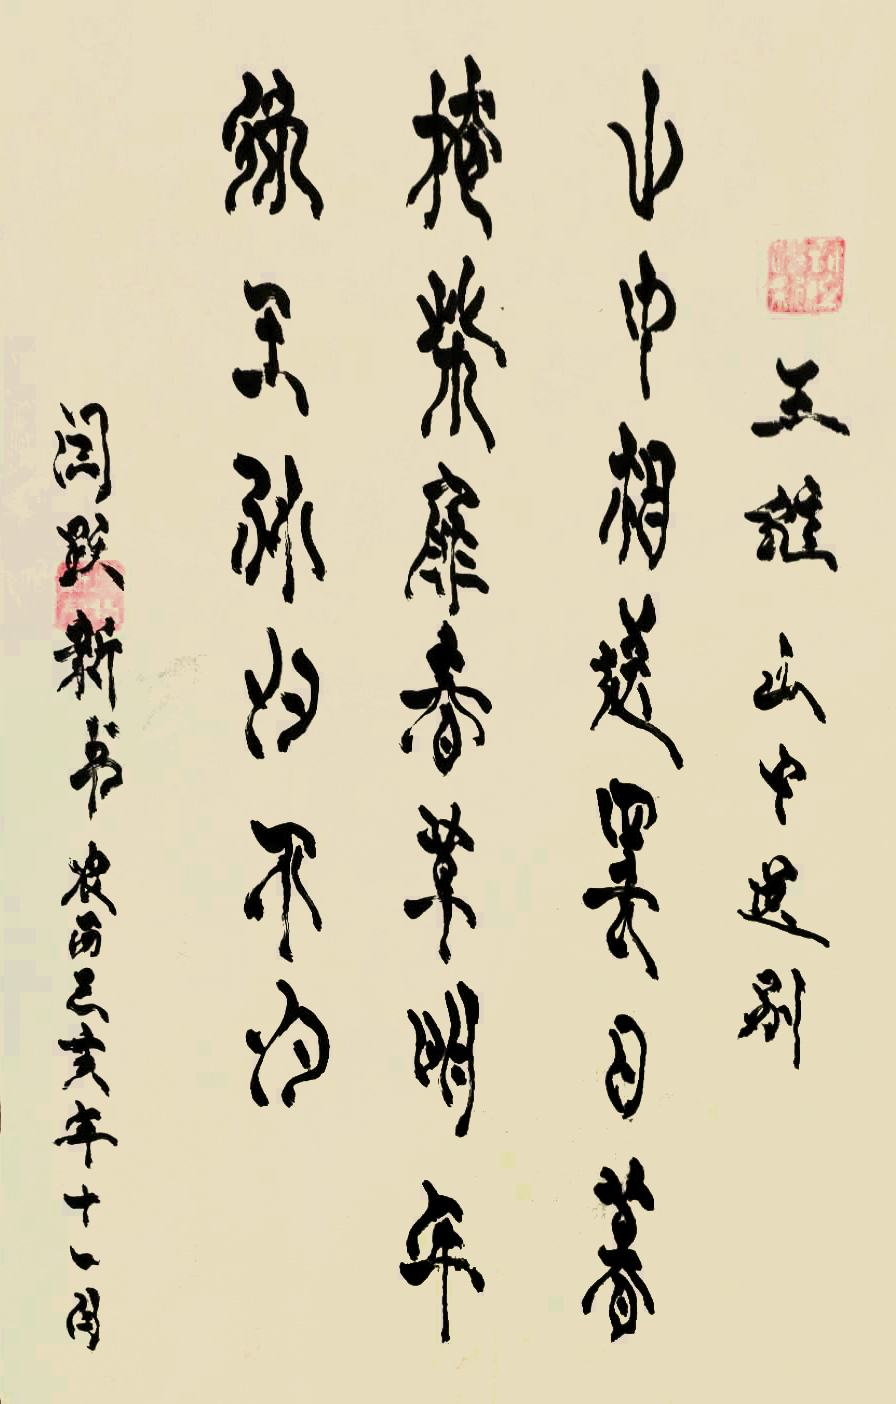 王維山中送别
山中相送罢日暮
掩柴扉春草明年
綠王孙归不归
闫跃新书 农历己亥年十一月